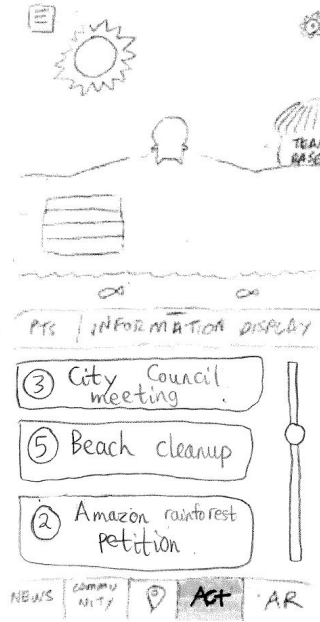 TEAM
BASE
PTS INFORMATION DISPLAY
3 City Council
meeting
5 Beach cleanup
2 Amazon rainforest
petition
NEWS COMMU
NITY ACT AR